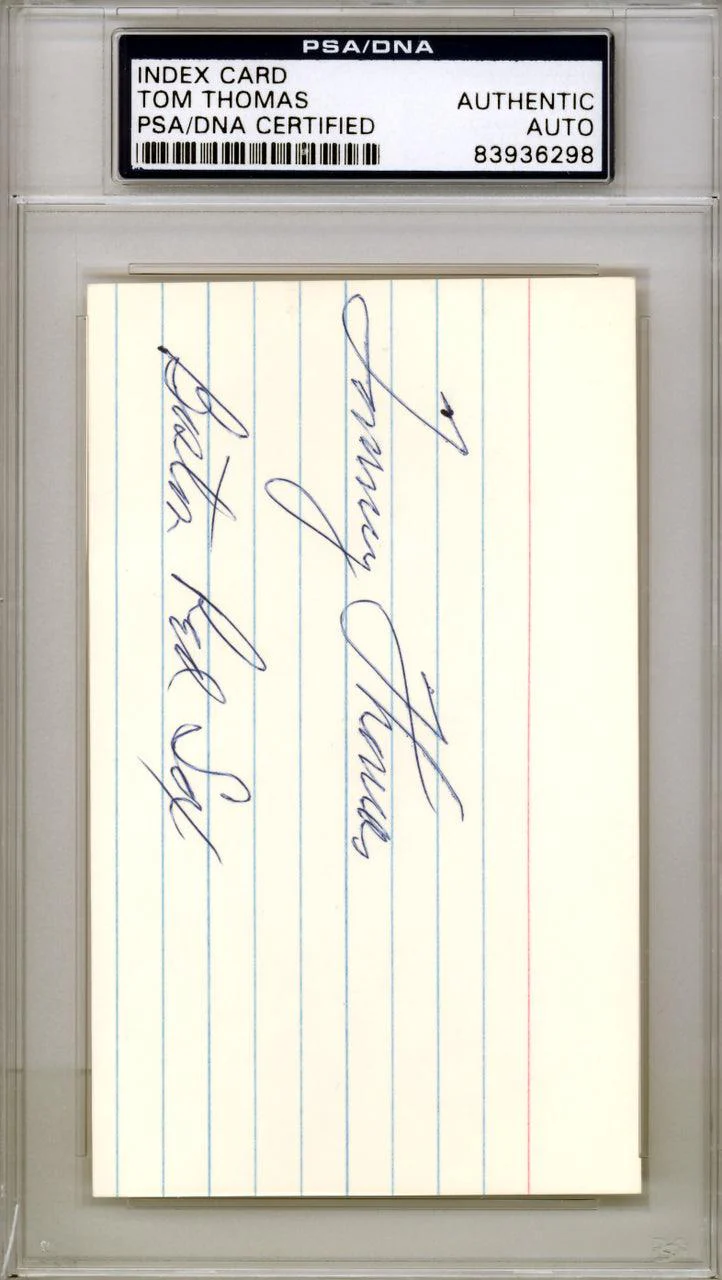 PSA/DNA
INDEX CARD
TOM THOMAS
AUTHENTIC
PSA/DNA CERTIFIED
AUTO
83936298
Tommy Thomas
Boston Red Sox